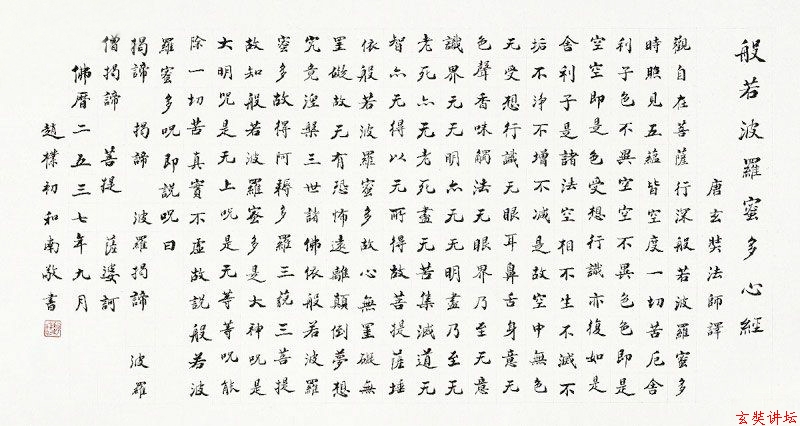 般若波羅蜜多心經
唐玄奘法師譯
觀自在菩薩行深般若波羅蜜多
時照見五蘊皆空度一切苦厄舍
利子色不異空空不異色色即是
空空即是色受想行識亦復如是
舍利子是諸法空相不生不滅不
垢不淨不增不減是故空中無色
无受想行識无眼耳鼻舌身意无
色聲香味觸法无眼界乃至无意
識界无无明亦无无明盡乃至无
老死亦无老死盡无苦集滅道无
智亦无得以无所得故菩提薩埵
依般若波羅蜜多故心無罣礙無
罣礙故无有恐怖遠離顛倒夢想
究竟涅槃三世諸佛依般若波羅
蜜多故得阿耨多羅三藐三菩提
故知般若波羅蜜多是大神咒是
大明咒是无上咒是无等等咒能
除一切苦真實不虛故說般若波
羅蜜多咒即說咒曰
揭諦 揭諦 波羅揭諦 波羅
僧揭諦 菩提 薩婆訶
佛曆二五三七年九月
趙樸初和南敬書
玄奘讲坛